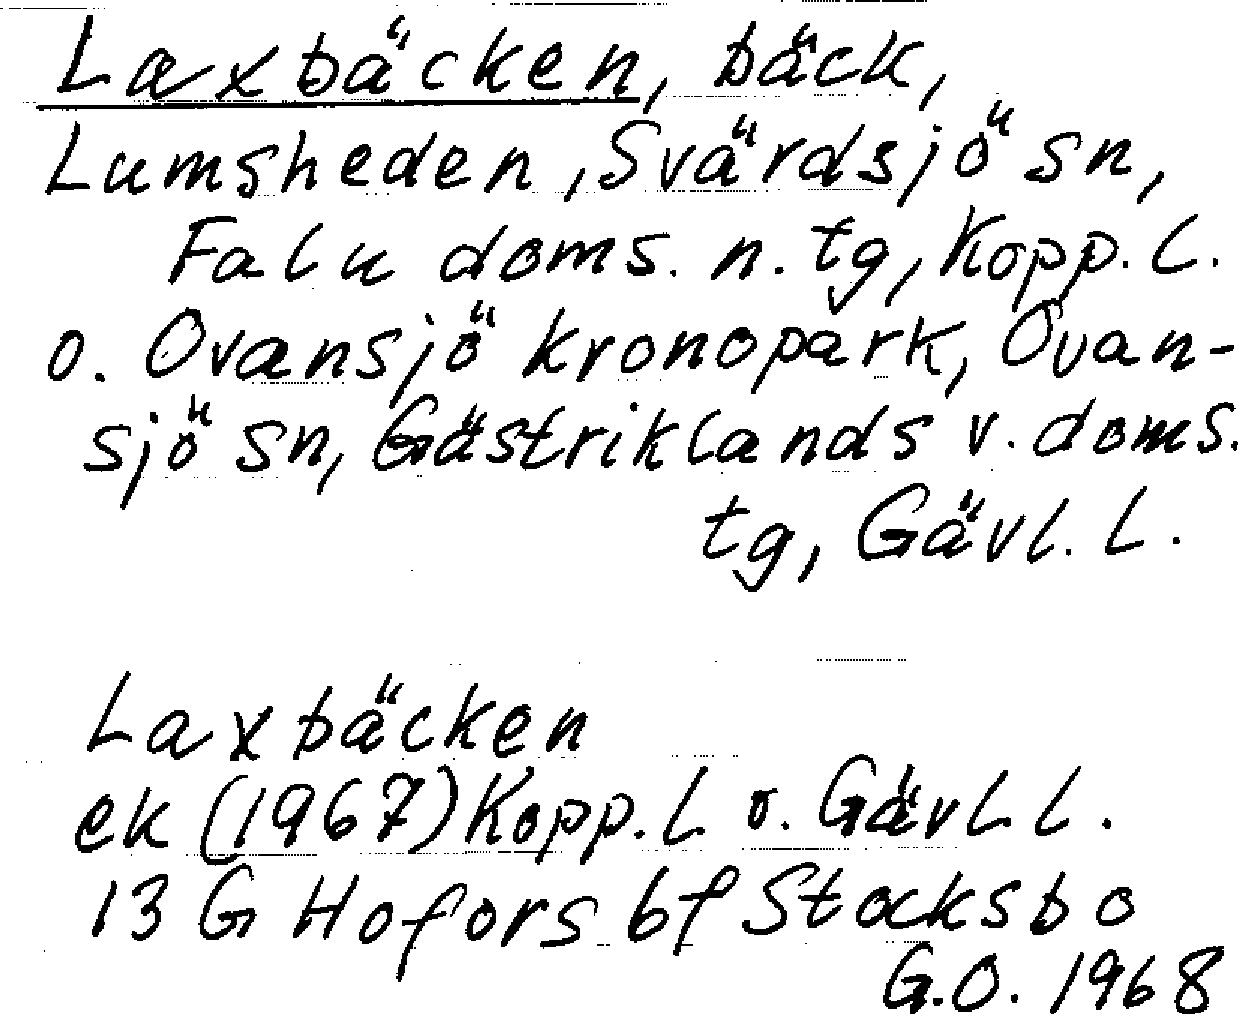 Laxbäcken, bäck,
Lumsheden, Svärdsjö sn,
Falu doms. n. tg, Kopp. l.
o. Ovansjö kronopark, Ovan-
sjö sn, Gästriklands v. doms.
tg, Gävl. l.
Laxbäcken
ek (1967) Kopp. l o. Gävl l.
13 G Hofors bf Stocksbo
G.O. 1968